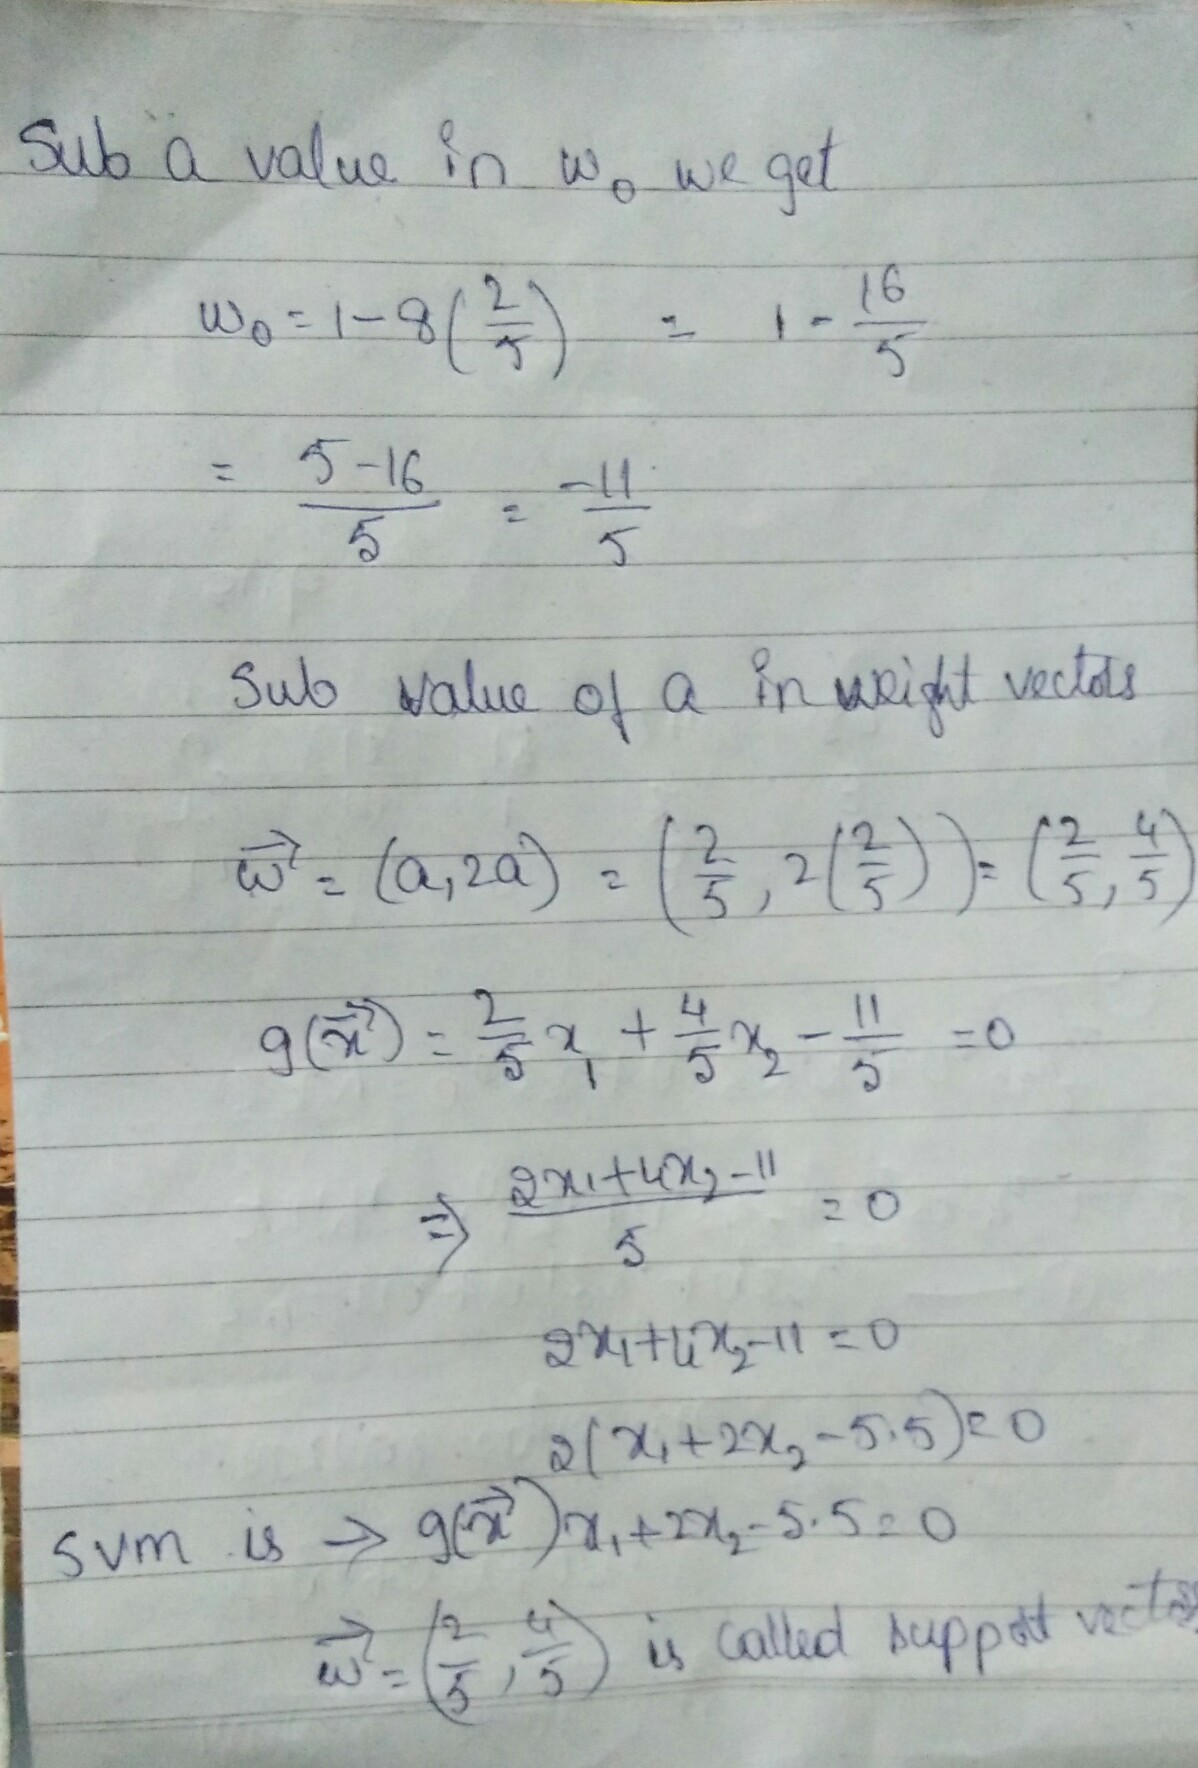 Sub a value in w₀ we get
w₀ = 1 - 8(2/5) = 1 - 16/5
= 5-16/5 = -11/5
Sub value of a in weight vectors
w⃗ = (a, 2a) = (2/5, 2(2/5)) = (2/5, 4/5)
g(x⃗) = 2/5 x₁ + 4/5 x₂ - 11/5 = 0
⇒ 2x₁+4x₂-11/5 = 0
2x₁+4x₂-11 = 0
2(x₁+2x₂-5.5) = 0
SVM is → g(x⃗) x₁+2x₂-5.5 = 0
w⃗ = (2/5, 4/5) is called support vectors